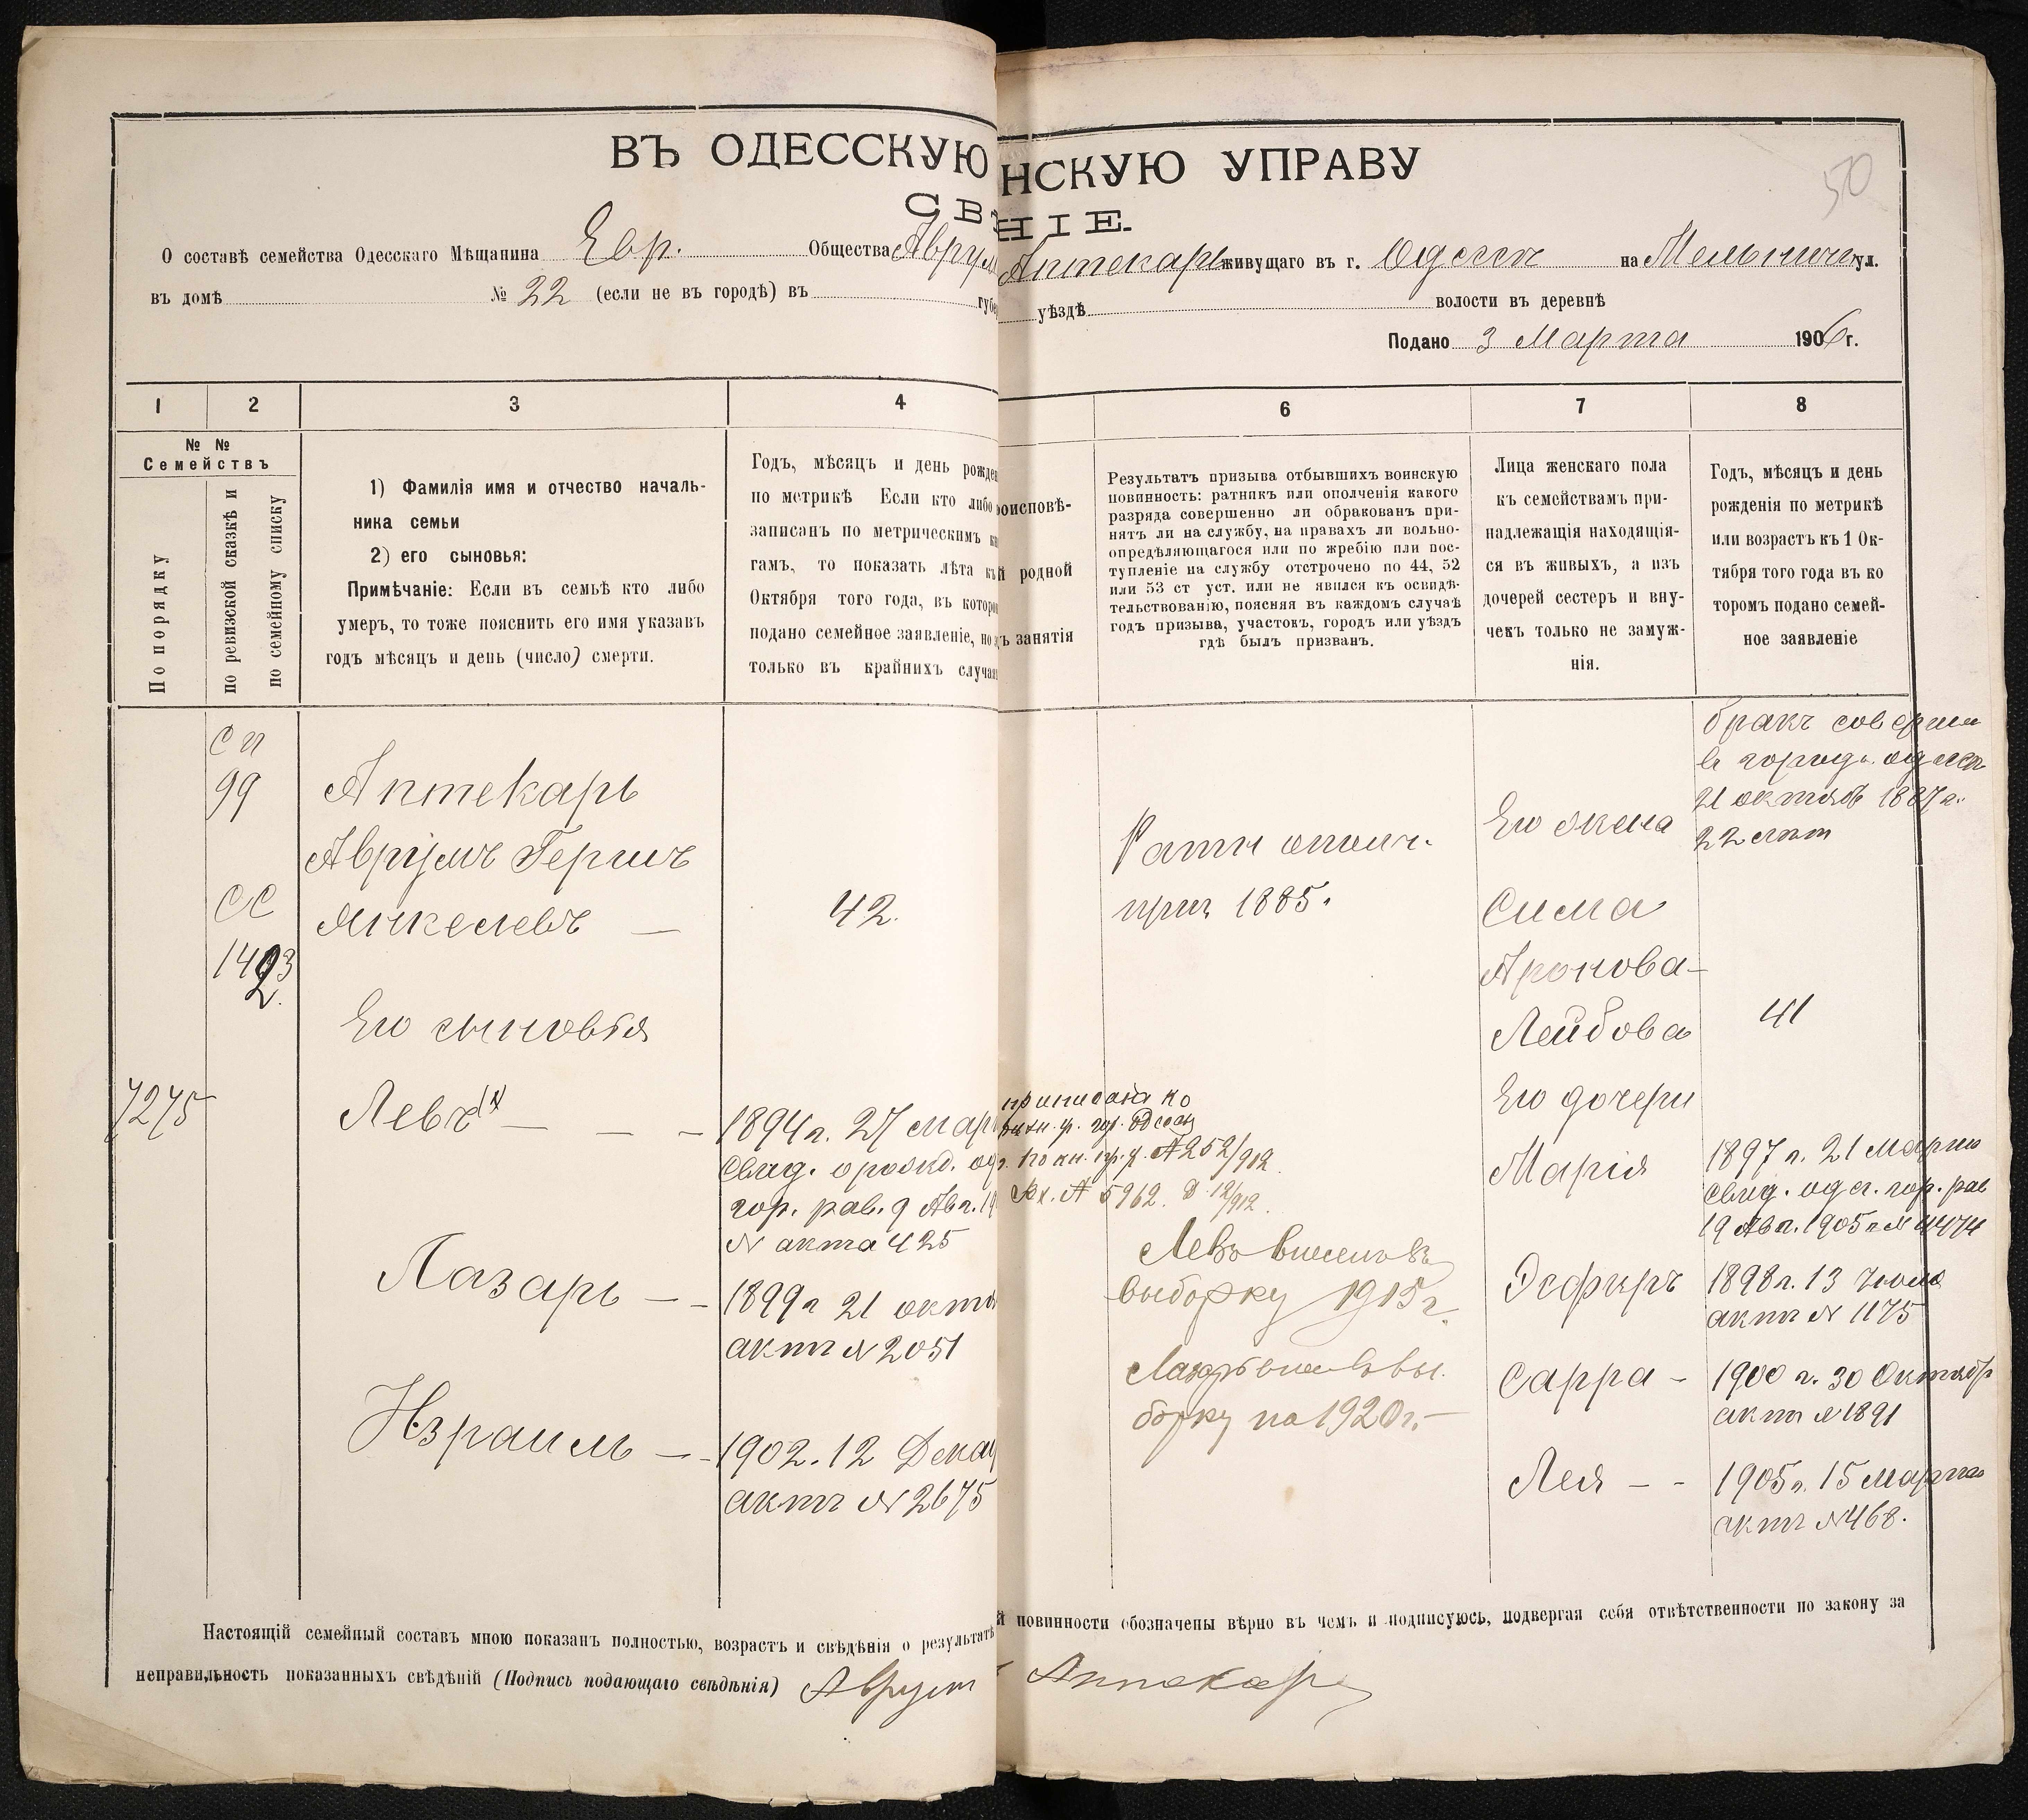 ВЪ ОДЕССКУЮ НСКУЮ УПРАВУ
50
СВѢ НІЕ.
О составѣ семейства Одесскаго Мѣщанина Евр. Общества Аврум Аптекарь живущаго въ г. Одессѣ на Мельничн ул.
въ домѣ № 22 (если не въ городѣ) въ губе уѣздѣ волости въ деревнѣ
Подано 3 Марта 1906 г.
1 2 3 4 6 7 8
№ №
Семействъ
По порядку
по ревизской сказкѣ и
по семейному списку
1) Фамилія имя и отчество началь-
ника семьи
2) его сыновья:
Примѣчаніе: Если въ семьѣ кто либо
умеръ, то тоже пояснить его имя указавъ
годъ мѣсяцъ и день (число) смерти.
Годъ, мѣсяцъ и день рожде
по метрикѣ Если кто либо
записанъ по метрическимъ кн
гамъ, то показать лѣта къ
Октября того года, въ которо
подано семейное заявленіе, но
только въ крайнихъ случая
оисповѣ-
й родной
ъ занятія
Результатъ призыва отбывшихъ воинскую
повинность: ратникъ или ополченія какого
разряда совершенно ли обракованъ при-
нятъ ли на службу, на правахъ ли вольно-
опредѣляющагося или по жребію или пос-
тупленіе на службу отстрочено по 44, 52
или 53 ст уст. или не явился къ освидѣ-
тельствованію, поясняя въ каждомъ случаѣ
годъ призыва, участокъ, городъ или уѣздъ
гдѣ былъ призванъ.
Лица женскаго пола
къ семействамъ при-
надлежащія находящія-
ся въ живыхъ, а изъ
дочерей сестеръ и вну-
чекъ только не замуж-
нія.
Годъ, мѣсяцъ и день
рожденія по метрикѣ
или возрастъ къ 1 Ок-
тября того года въ ко
торомъ подано семей-
ное заявленіе
СП
99
СС
1423
2.
7275
Аптекарь
Аврумъ Гершъ
Янкелевъ —
Его сыновья
Левъ — — —
Лазарь — —
Израиль — —
42.
1894 г. 27 мар
свид. о рожд. од
гор. рав. 9 Авг. 19
№ акта 425
1899 г 21 октя
актъ № 2051
1902. 12 Дека
актъ № 2675
приписана ко
по кн. пр. у. № 252/912
Вх. № 5962. Д. 12/912.
Ратн ополч.
приз 1885.
Левъ внесенъ въ
выборку 1915 г.
Лазарь внесенъ вы.
борку на 1920 г. —
Его жена
Сима
Аронова-
Лейбова
Его дочери
Марія
Эсфирь
Сарра —
Лея — -
бракъ соверш
въ городѣ одессѣ
21 октяб 1887 г.
22 лѣт
41
1897 г. 21 Марта
свид. од. гор. рав
19 Авг. 1905 г № 4474
1898 г. 13 Іюля
актъ № 1175
1900 г. 30 Октябр
актъ № 1891
1905 г. 15 Марта
актъ № 468.
Настоящій семейный составъ мною показанъ полностью, возрастъ и свѣдѣнія о результатѣ й повинности обозначены вѣрно въ чемъ и подписуюсь, подвергая себя отвѣтственности по закону за
неправильность показанныхъ свѣдѣній (Подпись подающаго свѣдѣнія) Аврум Аптекарь